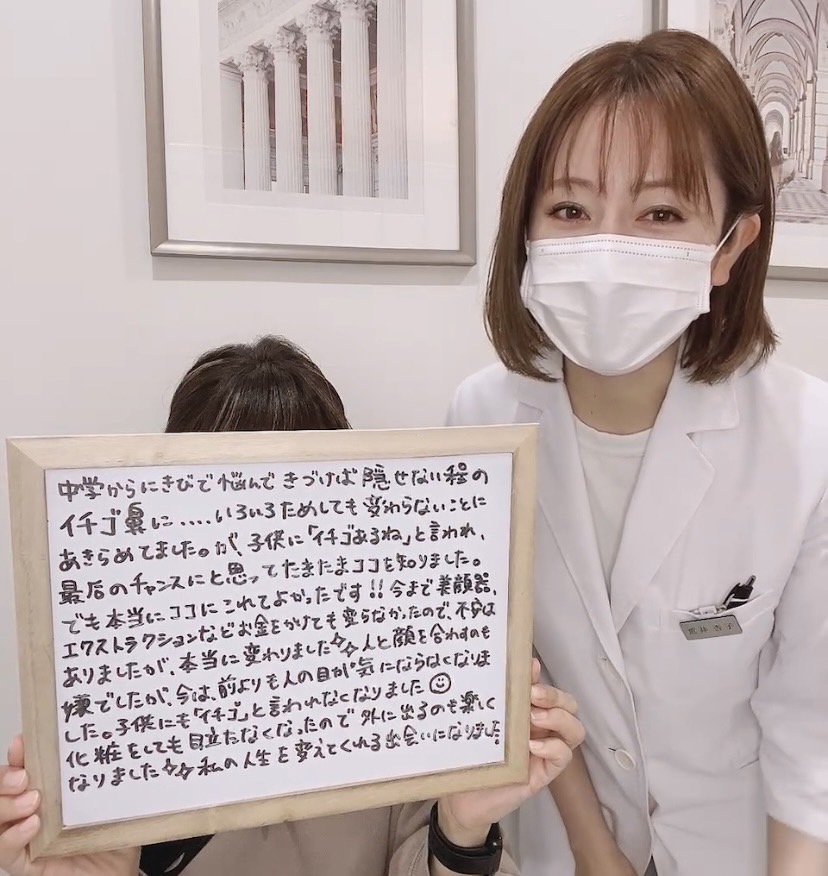 中学からにきびで悩んで きづけば 隠せない程の
イチゴ鼻に.....いろいろためしても変わらないことに
あきらめてました。が、子供に「イチゴあるね」と言われ、
最后のチャンスにと思ってたまたまココを知りました。
でも本当にココにこれてよかったです!! 今まで美顔器、
エクストラクションなどお金をかけても変らなかったので、不安は
ありましたが、本当に変わりました☆☆人と顔を合わすのも
嫌でしたが、今は、前よりも人の目が気にならなくなりま
した。子供にも「イチゴ」と言われなくなりました☺
化粧をしても目立たなくなったので外に出るのも楽しく
なりました☆☆私の人生を変えてくれる出会いになりました!